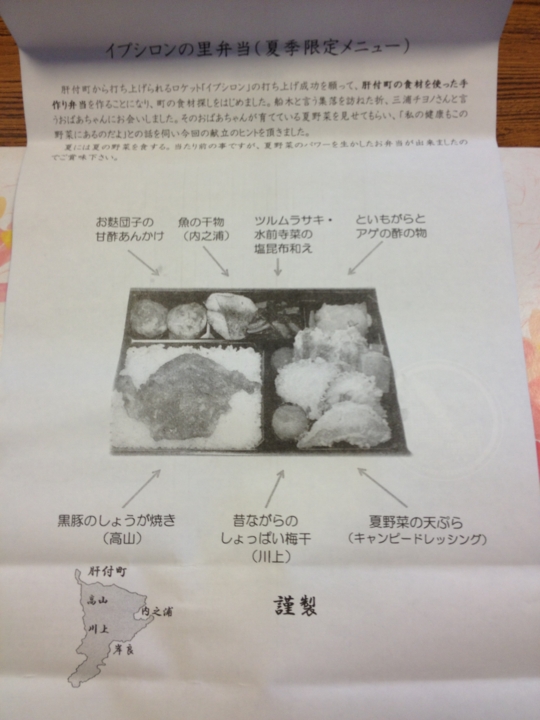 イプシロンの里弁当(夏季限定メニュー)
肝付町から打ち上げられるロケット「イプシロン」の打ち上げ成功を願って、肝付町の食材を使った手
作り弁当を作ることになり、町の食材探しをはじめました。船木と言う集落を訪ねた折、三浦チヨノさんと言
うおばあちゃんにお会いしました。そのおばあちゃんが育てている夏野菜を見せてもらい、「私の健康もこの
野菜にあるのだよ」との話を伺い今回の献立のヒントを頂きました。
夏には夏の野菜を食する。当たり前の事ですが、夏野菜のパワーを生かしたお弁当が出来ましたの
でご賞味下さい。
お麩団子の
甘酢あんかけ
魚の干物
(内之浦)
ツルムラサキ・
水前寺菜の
塩昆布和え
といもがらと
アゲの酢の物
黒豚のしょうが焼き
(高山)
昔ながらの
しょっぱい梅干
(川上)
夏野菜の天ぷら
(キャンビードレッシング)
肝付町
高山
内之浦
川上
岸良
謹製